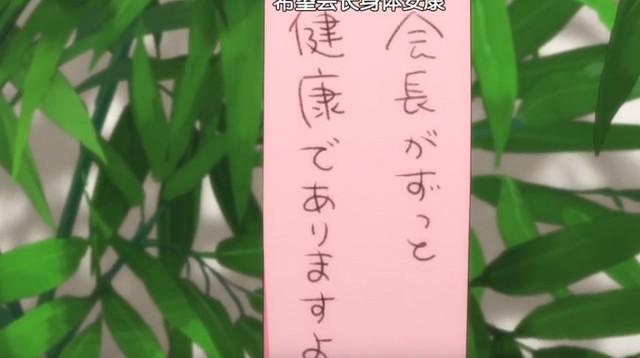 希望会长身体安康
会長がずっと
健康でありますよ